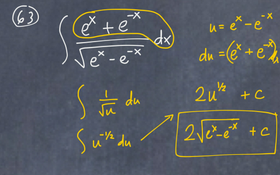 63
∫ (e^x + e^-x) / √(e^x - e^-x) dx
u = e^x - e^-x
du = (e^x + e^-x) dx
∫ 1/√u du
2u^1/2 + c
∫ u^-1/2 du
2√(e^x - e^-x) + c